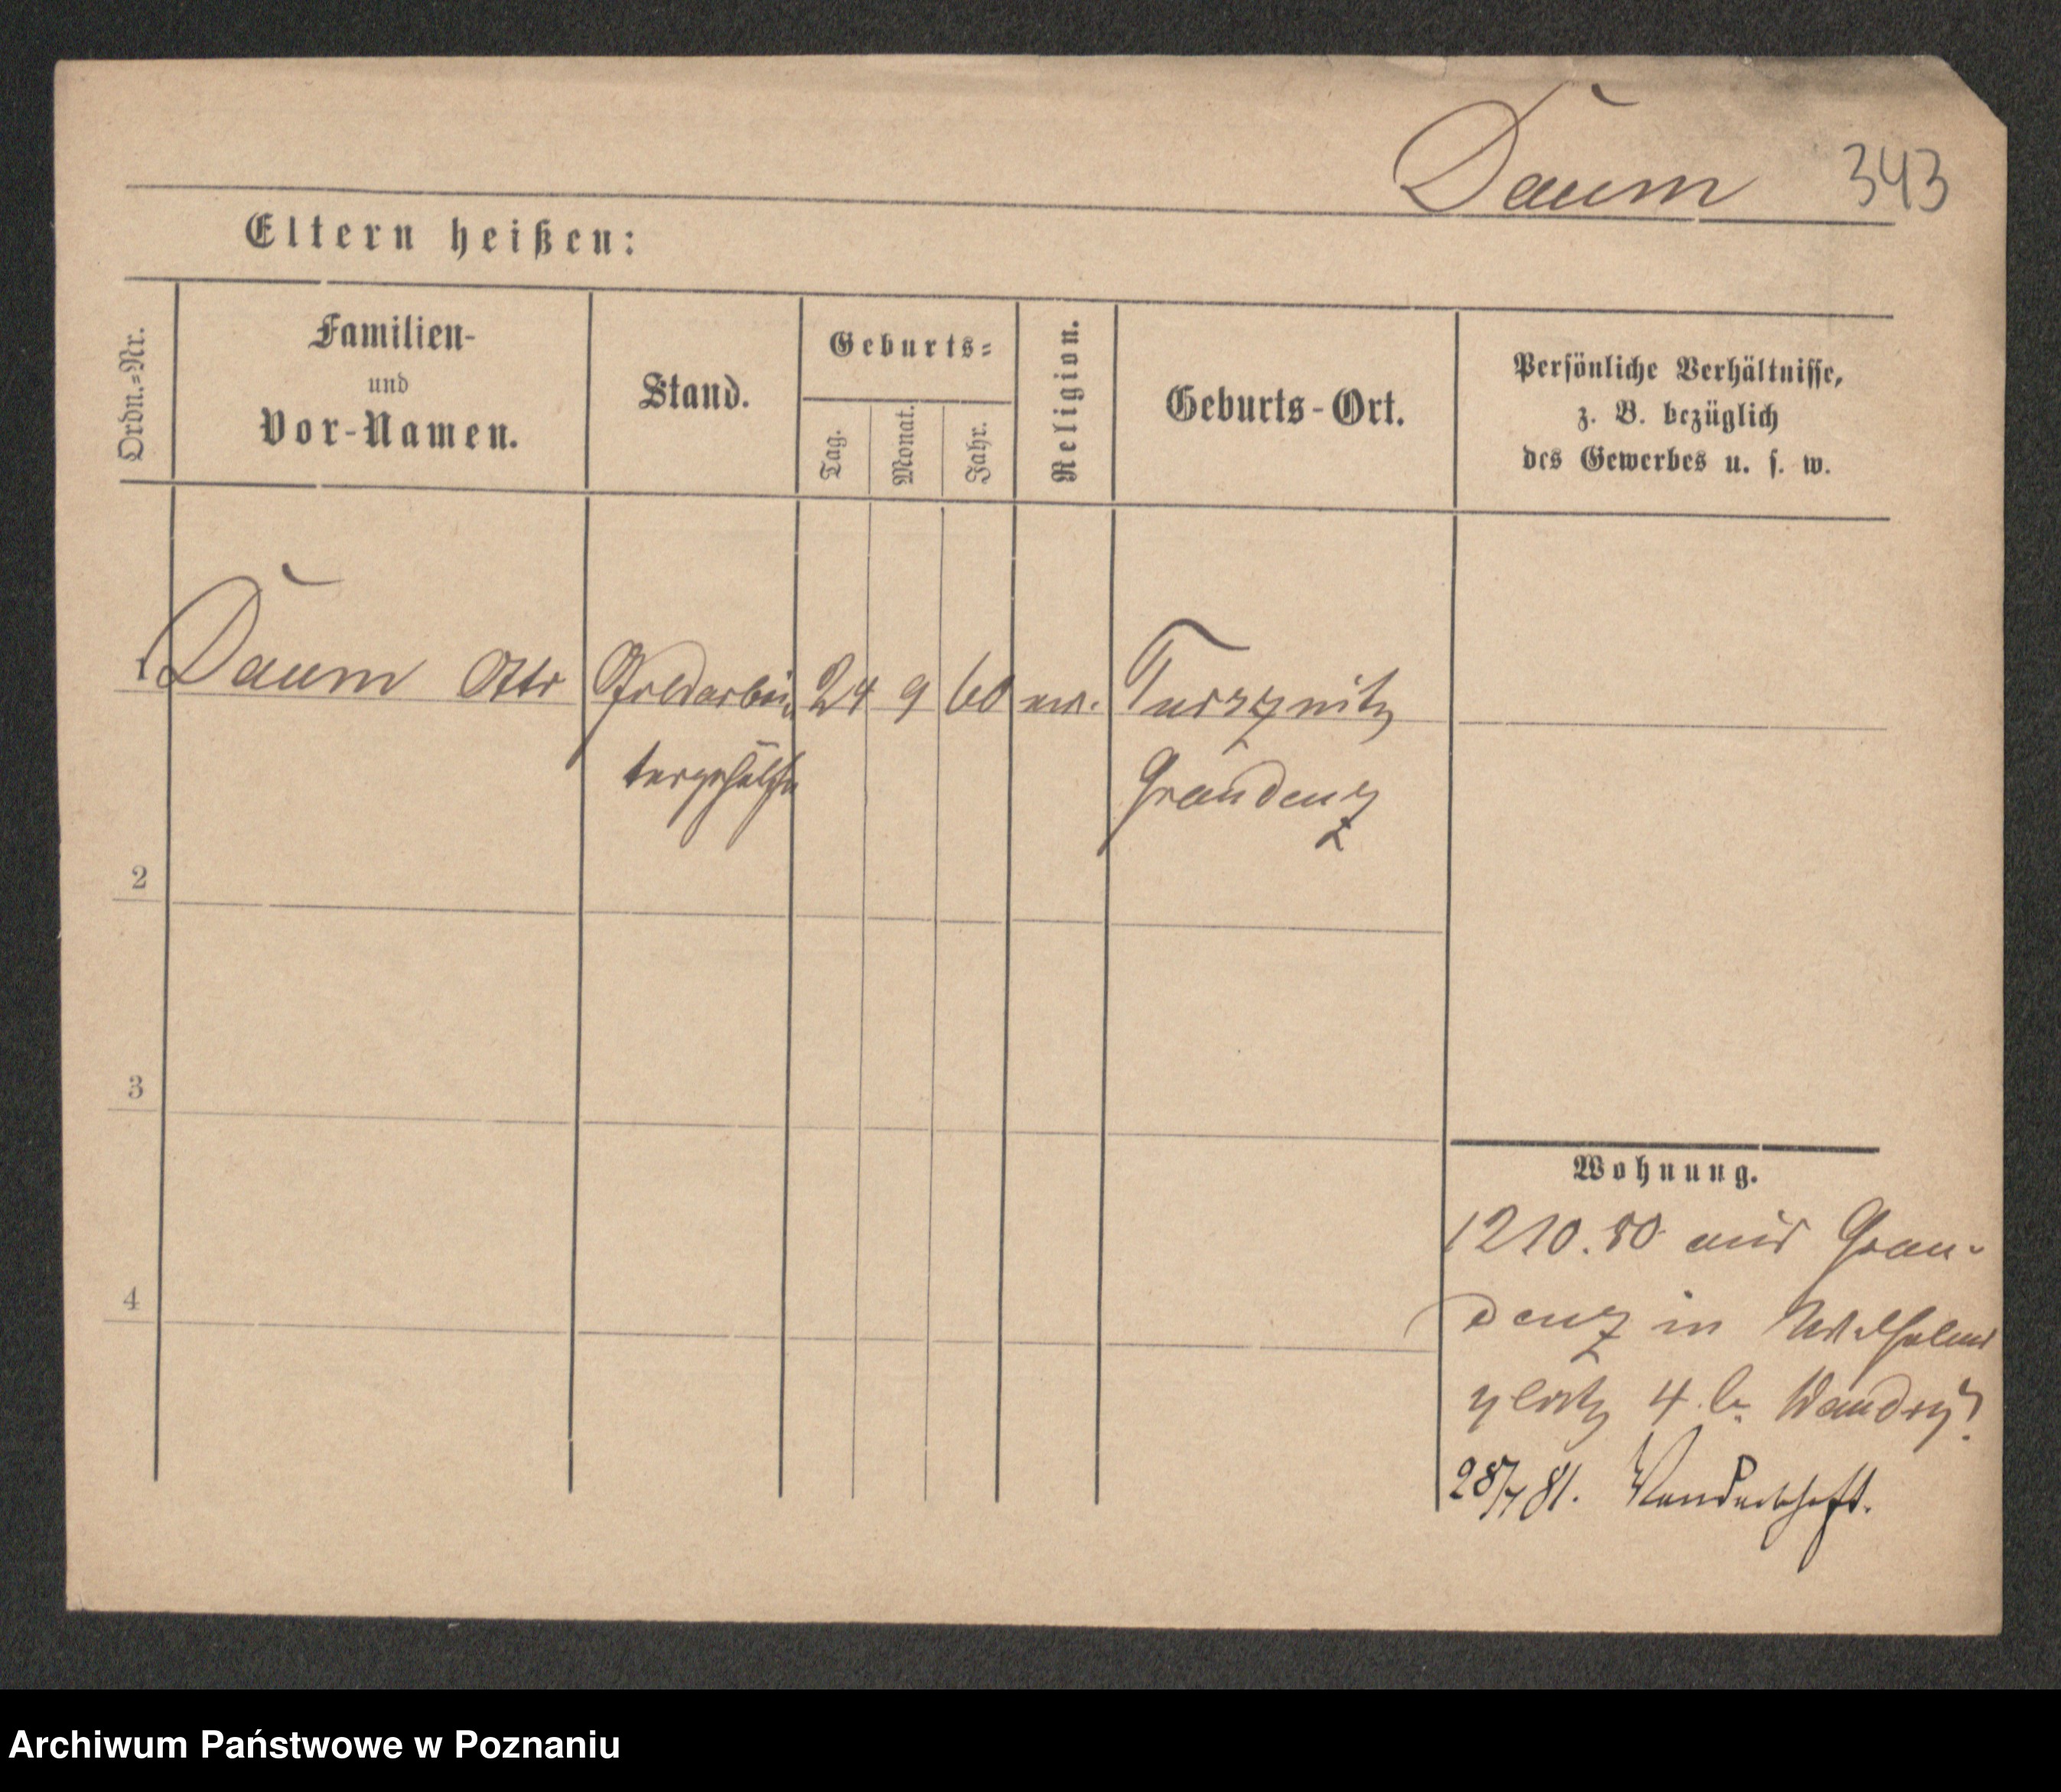 Daum 343
Eltern heißen:
Ordn.=Nr.
Familien-
und
Vor-Namen.
Stand.
Geburts=
Tag.
Monat.
Jahr.
Religion.
Geburts-Ort.
Persönliche Verhältnisse,
z. B. bezüglich
des Gewerbes u. s. w.
1 Daum Otto Goldarbei 24 9 60 ev. Tursznitz
tergehülfe Graudenz
2
3
4
Wohnung.
1210.80 aus Grau-
denz in Wilhelms
platz 4. b.
28/7 81. Wanderschaft.
Archiwum Państwowe w Poznaniu